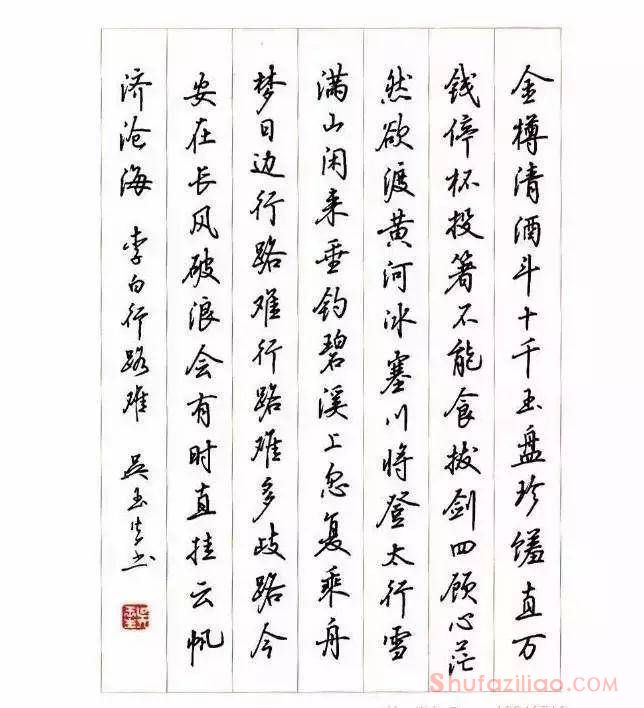 金樽清酒斗十千玉盘珍馐直万
钱停杯投箸不能食拔剑四顾心茫
然欲渡黄河冰塞川将登太行雪
满山闲来垂钓碧溪上忽复乘舟
梦日边行路难行路难多歧路今
安在长风破浪会有时直挂云帆
济沧海 李白行路难 吴玉生书
Shufaziliao.com